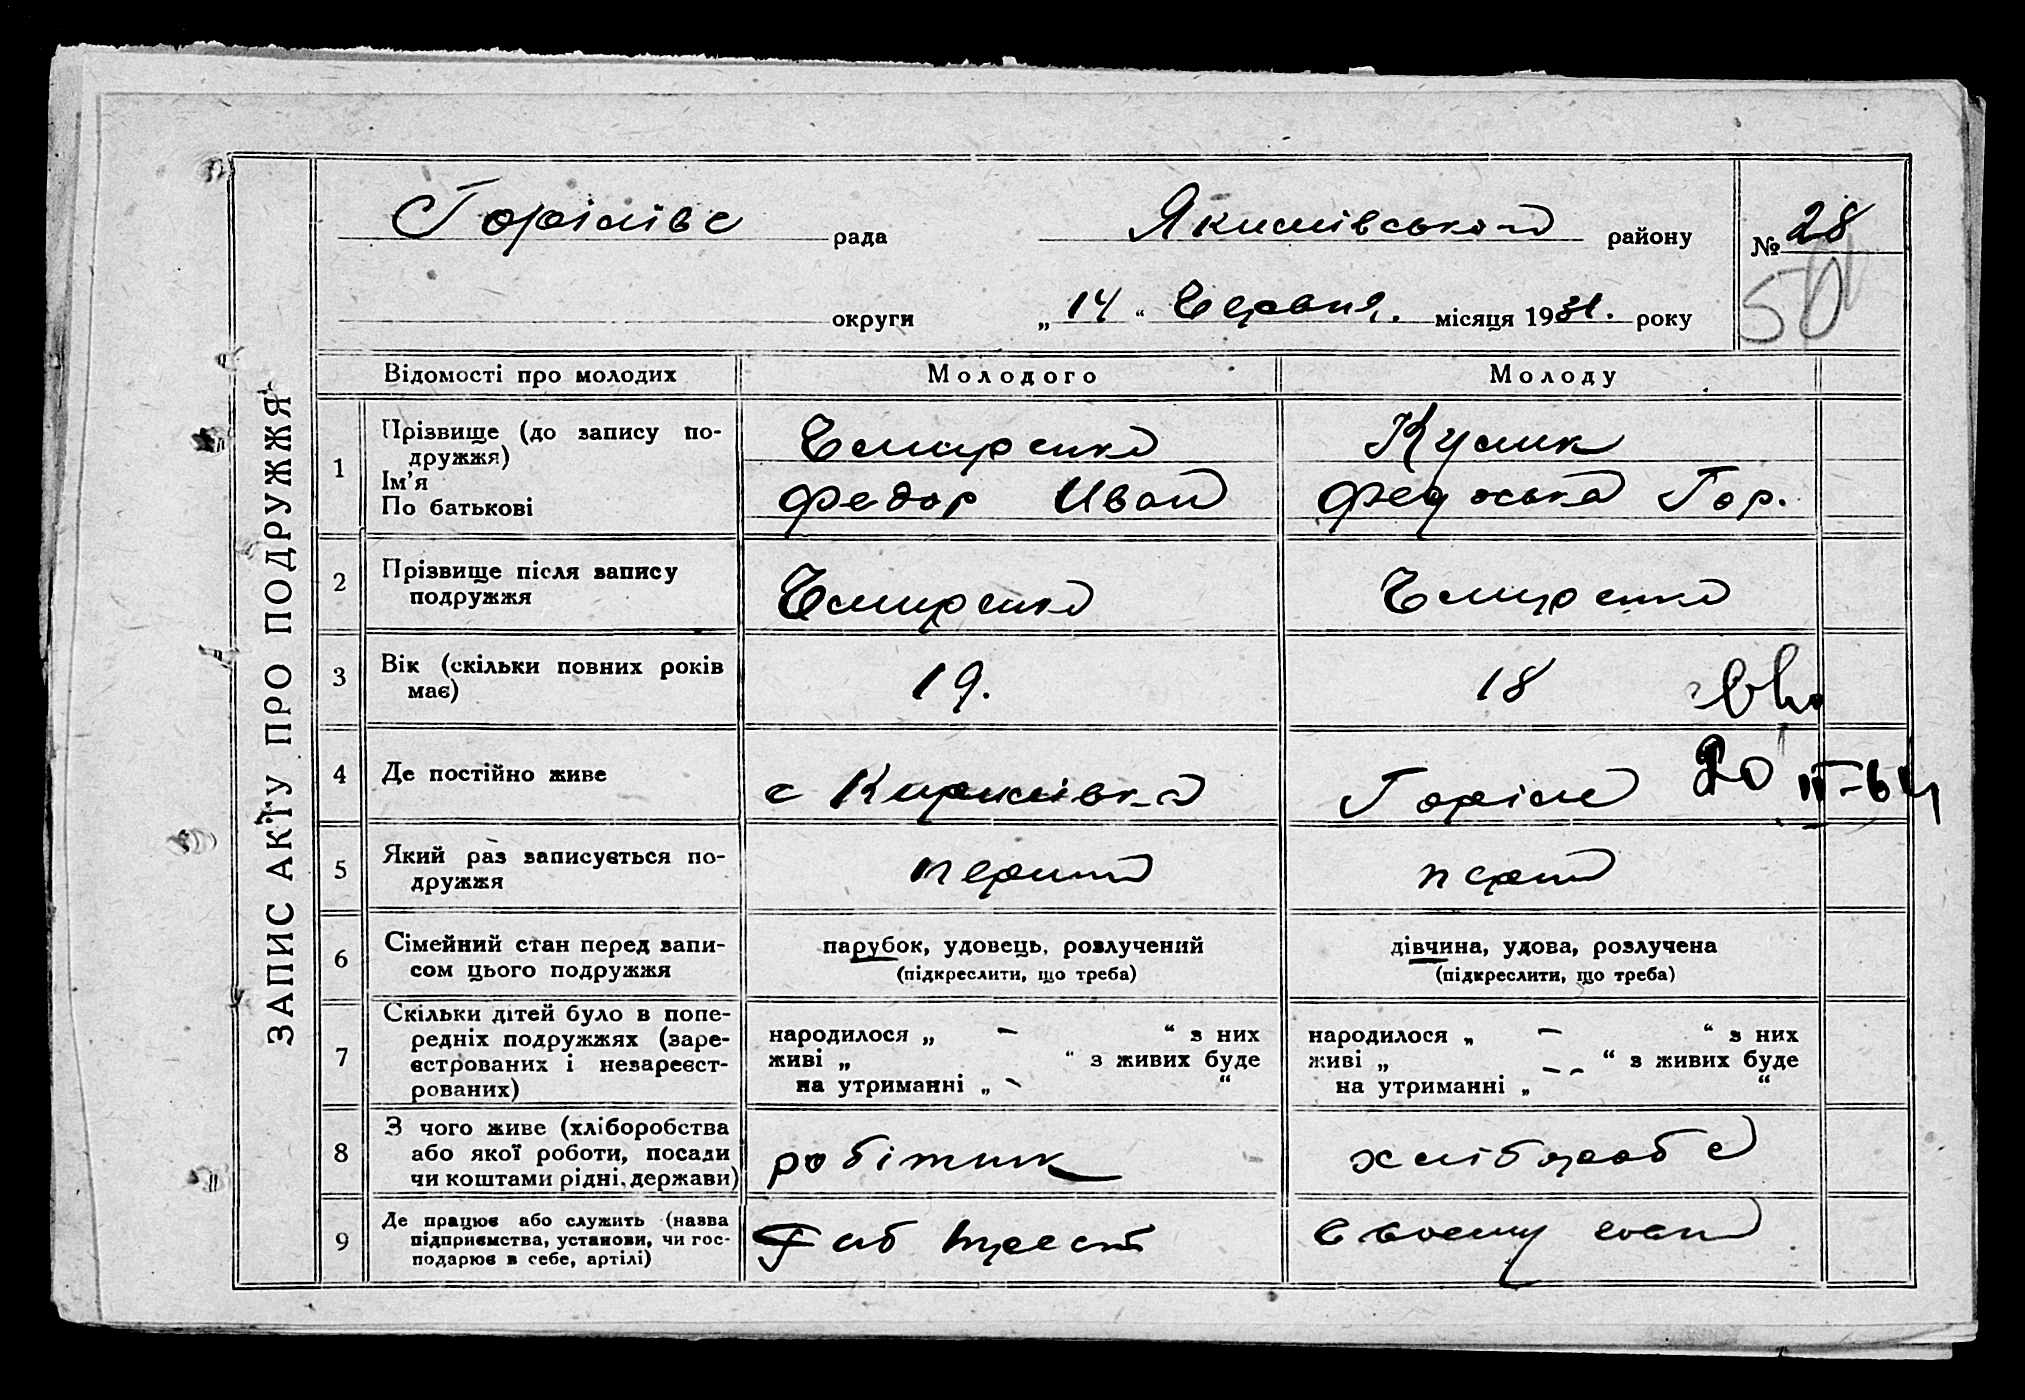 ЗАПИС АКТУ ПРО ПОДРУЖЖЯ
Горілівс рада Якимівського району № 28
50
округи „14“ Червня. місяця 1931. року
Відомості про молодих Молодого Молоду
1 Прізвище (до запису по-
дружжя)
Ім'я
По батькові
Чмиренко
Федор Иван
Кулик
Феодоська Гор.
2 Прізвище після запису
подружжя
Чмиренко Чмиренко
3 Вік (скільки повних років
має)
19. 18
4 Де постійно живе
с Кирилівка Горіле 20 II-64
5 Який раз записується по-
дружжя
перший перший
6 Сімейний стан перед запи-
сом цього подружжя
парубок, удовець, розлучений
(підкреслити, що треба)
дівчина, удова, розлучена
(підкреслити, що треба)
7 Скільки дітей було в попе-
редніх подружжях (заре-
єстрованих і незареєст-
рованих)
народилося „ — “ з них
живі „ “ з живих буде
на утриманні „ - “
народилося „ — “ з них
живі „ “ з живих буде
на утриманні „ - - “
8 З чого живе (хліборобства
або якої роботи, посади
чи коштами рідні, держави)
робітник хлібороб
9 Де працює або служить (назва
підприємства, установи, чи гос-
подарює в себе, артілі)
трест в своему